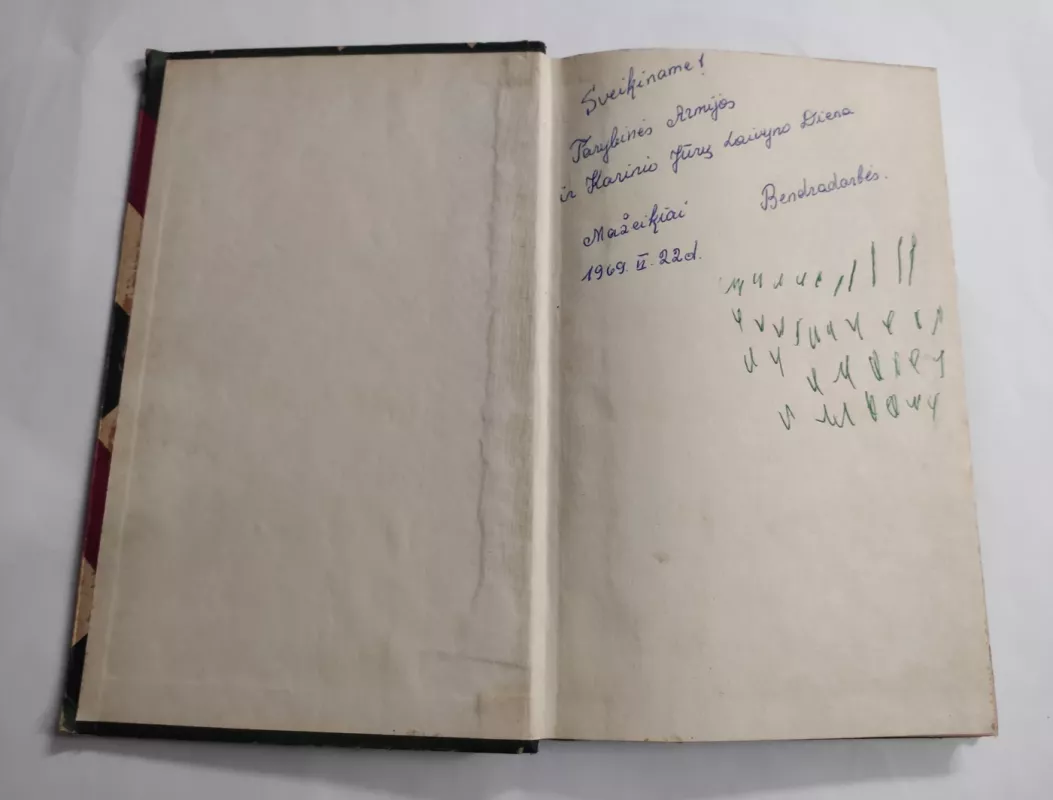 Sveikiname!
Tarybinės Armijos
ir Karinio Jūrų Laivyno Diena
Mažeikiai Bendradarbės.
1969. II. 22d.